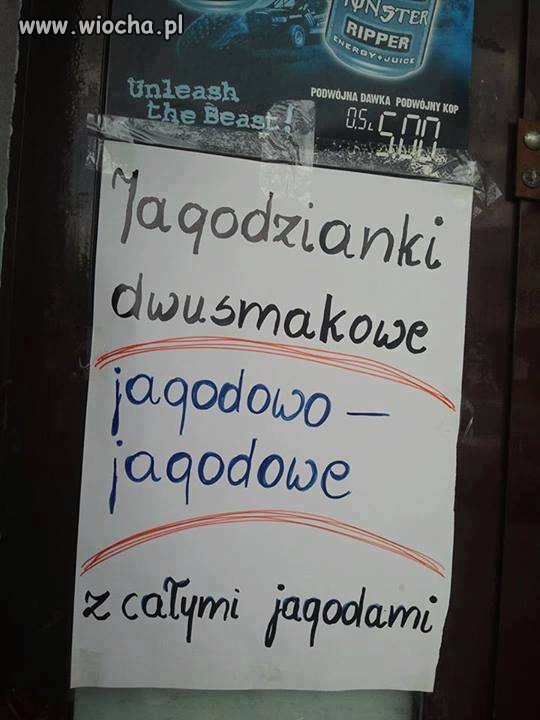 www.wiocha.pl
MONSTER
RIPPER
ENERGY+JUICE
Unleash
the Beast!
PODWÓJNA DAWKA PODWÓJNY KOP
0.5L 5,00
Jagodzianki
dwusmakowe
jagodowo –
jagodowe
z całymi jagodami